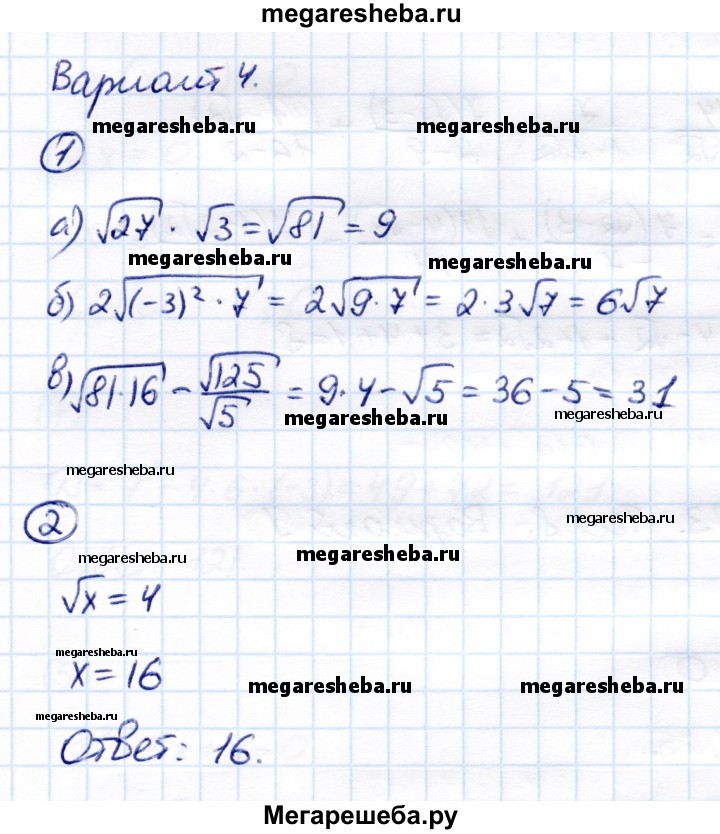 megaresheba.ru
Вариант 4.
megaresheba.ru megaresheba.ru
1
а) √27 · √3 = √81 = 9
megaresheba.ru megaresheba.ru
б) 2√((-3)² · 7) = 2√(9 · 7) = 2 · 3√7 = 6√7
в) √(81·16) - √125/√5 = 9·4 - √5 = 36 - 5 = 31
megaresheba.ru megaresheba.ru
megaresheba.ru
2
megaresheba.ru
megaresheba.ru megaresheba.ru
√x = 4
megaresheba.ru
x = 16
megaresheba.ru megaresheba.ru
megaresheba.ru
Ответ: 16.
Мегарешеба.ру